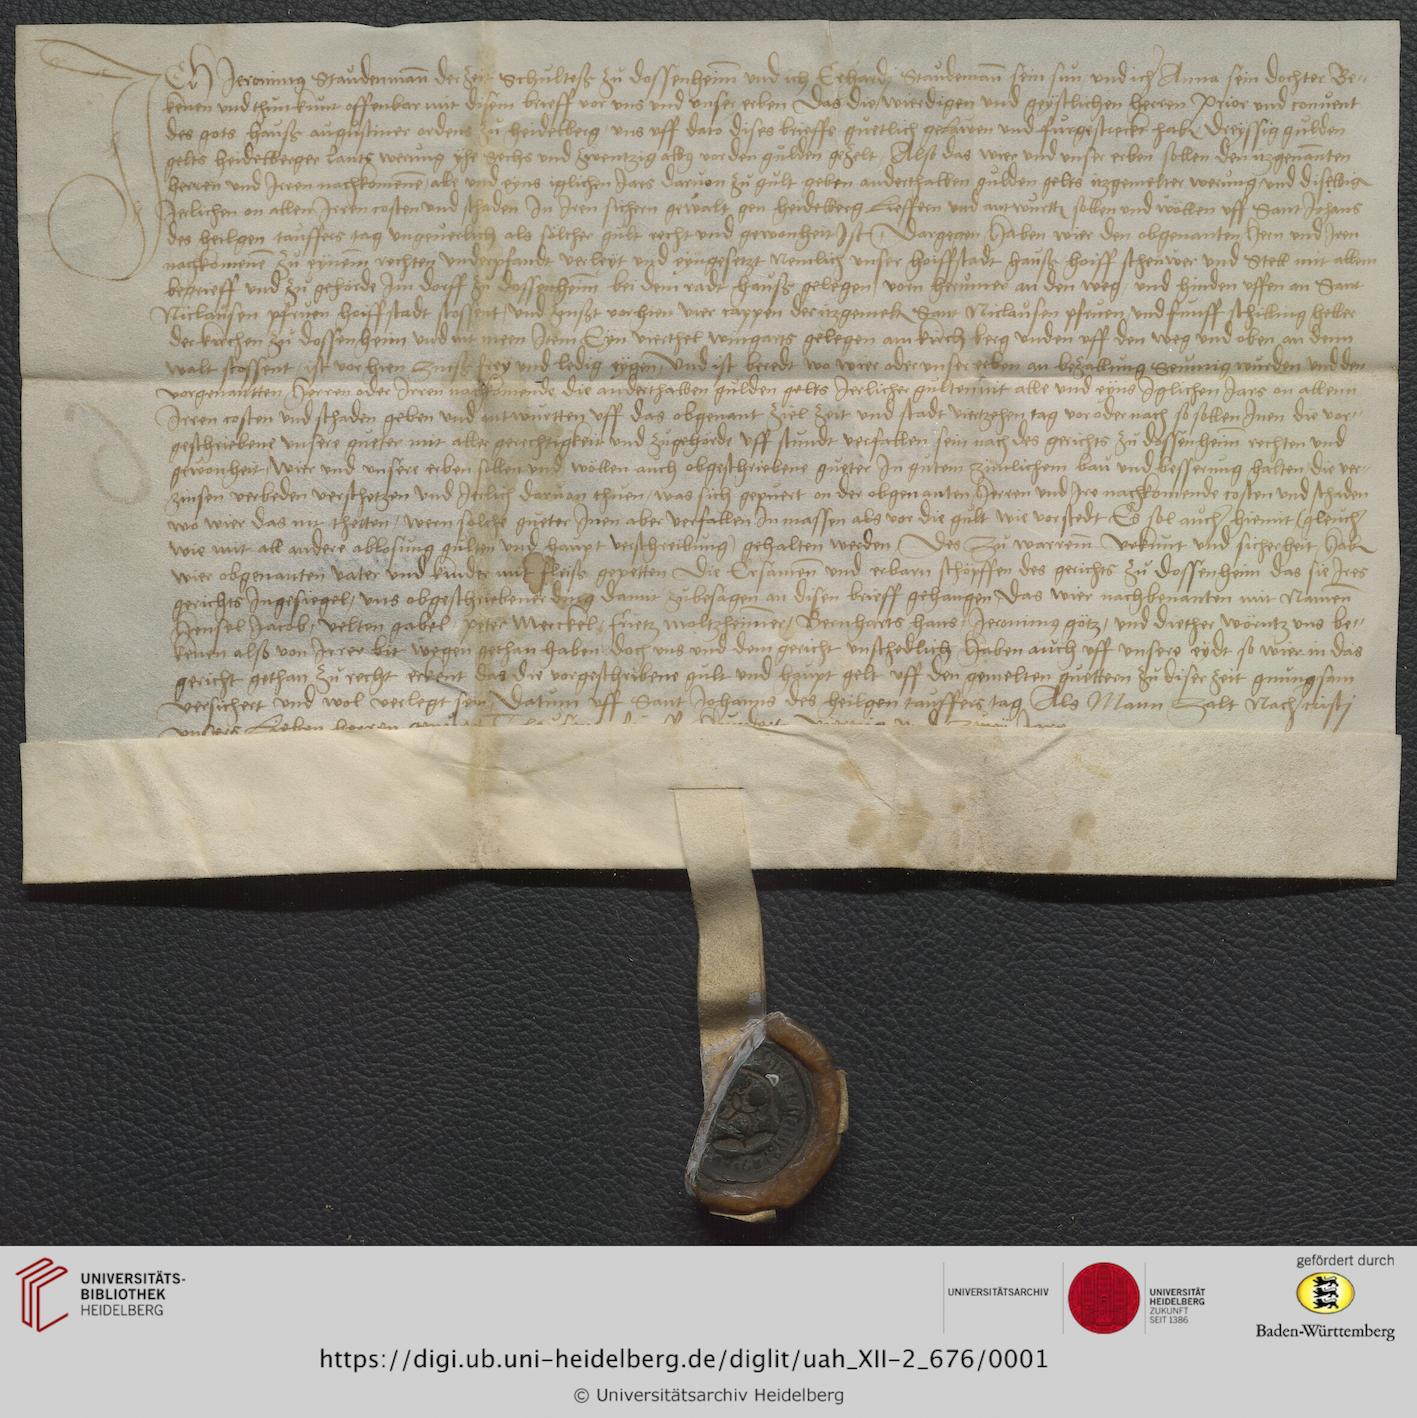 ICh Jeronimus Staudenman der zeit Schulteß zu dossenheim und ich Erhardt Staudeman sein sun und ich Anna sein dochter Be-
kenen und thun kunt offenbar mit disem brieff vor uns und unser erben Das die wierdigen und geystlichen herren Prior und convent
des gots hauß augustiner ordens zu heidelberg uns uff dato dises brieffs guetlich gelawen und furgestreckt habe dreyssig gulden
gelts heidelberger lants werung yhe Sechs und zwentzig albus vor den gulden gezelt Also das wier und unser erben sollen den itzgenanten
herren und Irren nachkomene alle und eyns iglichen Jars darvon zu gult geben anderthalben gulden gelts itzgemelter werung und diselbig
Jerlichen on allen Irren costen und schaden In Iren sichern gewalt gen heidelberg Lieffern und antwurtt sollen und wöllen uff Sant Johans
des heilgen tauffers tag ungeuerlich als sölcher gult recht und gewonheit Ist Dargegen haben wier den obgenanten hern und Iren
nachkomene zu eynem rechten underpfandt verleyt und eyngesetzt Nemlich unser hoiffstadt hauß hoiff scheuwer und Stell mit allem
begrieff und zu gehörde Im dorff zu dossenheim bei dem radt hauß gelegen vorn herumer an den weg und hinden uffen an Sant
Niclausen pfruen hoiffstadt stossent und zinßt vorhien vier cappen der itzgemelt Sant Niclausen pfruen und funff schilling heller
der kirchen zu dossenheim und nit meen Item Eyn vierthel wingarts gelegen am kirch berg unden uff den weg und oben an dem
walt stossent ist vor hien Zinß frey und ledig eygen Und ist beredt wo wier oder unser erben an bezallung Seumig wurden und den
vorgenantten herren oder Irren nachkomende die anderthalben gulden gelts Jerlicher gult nit alle und eyns Iglichen Jars on allenn
Irren costen und schaden geben und antwurtten uff das obgenant ziel zeit und stadt viertzehen tag vor oder nach so sollen Inen die vor-
geschriebene unsere gueter mit aller gerechtigkeit und zugehörde uff stundt verfallen sein nach des gerichts zu dossenheim rechten und
gewonheit wier und unsere erben sollen und wöllen auch obgeschriebene gueter In gutem zimlichem bau und besserung halten die ver-
zinsen verbeden verschetzen und Jerlich darvon thuen was sich gepuert on der obgenanten herren und Ire nachkomende costen und schaden
wo wier das nit thetten wern solche gueter Inen aber verfallen In massen als vor die gult wie vorstedt Es sol auch hiemit gleuch
wie mit all andere ablosung gulten und haupt verschreibung gehalten werden Des zu warrem urkunt und sicherheit hab
wier obgenanten vater und kinder mit fleiß gepetten Die Ersamen und erbarn schöpffen des gerichts zu dossenheim das sie Ires
gerichts Ingesiegel uns obgeschriebener ding damit zubesagen an disen brieff gehangen Das wier nachbenanten mit Namen
hensel Jacob velten gabel peter Merckel frietz moltzheimer Bernharts hans Jeronimus götz und diether wörntz uns be-
kenen alß von Irrer bit wegen gethan haben doch uns und dem gericht unschedlich haben auch uff unsere eydt so wier in das
gericht gethan zu recht erkent das die vorgeschriebene gult und haupt gelt uff den gemelten guettern zu diser zeit gnungsam
versichert und wol verlegt sein Datum uff Sant Johanns des heilgen tauffers tag Als Mann zalt Nach cristi
unsers Lieben herren
UNIVERSITÄTS-
BIBLIOTHEK
HEIDELBERG
UNIVERSITÄTSARCHIV
UNIVERSITÄT
HEIDELBERG
ZUKUNFT
SEIT 1386
gefördert durch
Baden-Württemberg
https://digi.ub.uni-heidelberg.de/diglit/uah_XII-2_676/0001
© Universitätsarchiv Heidelberg